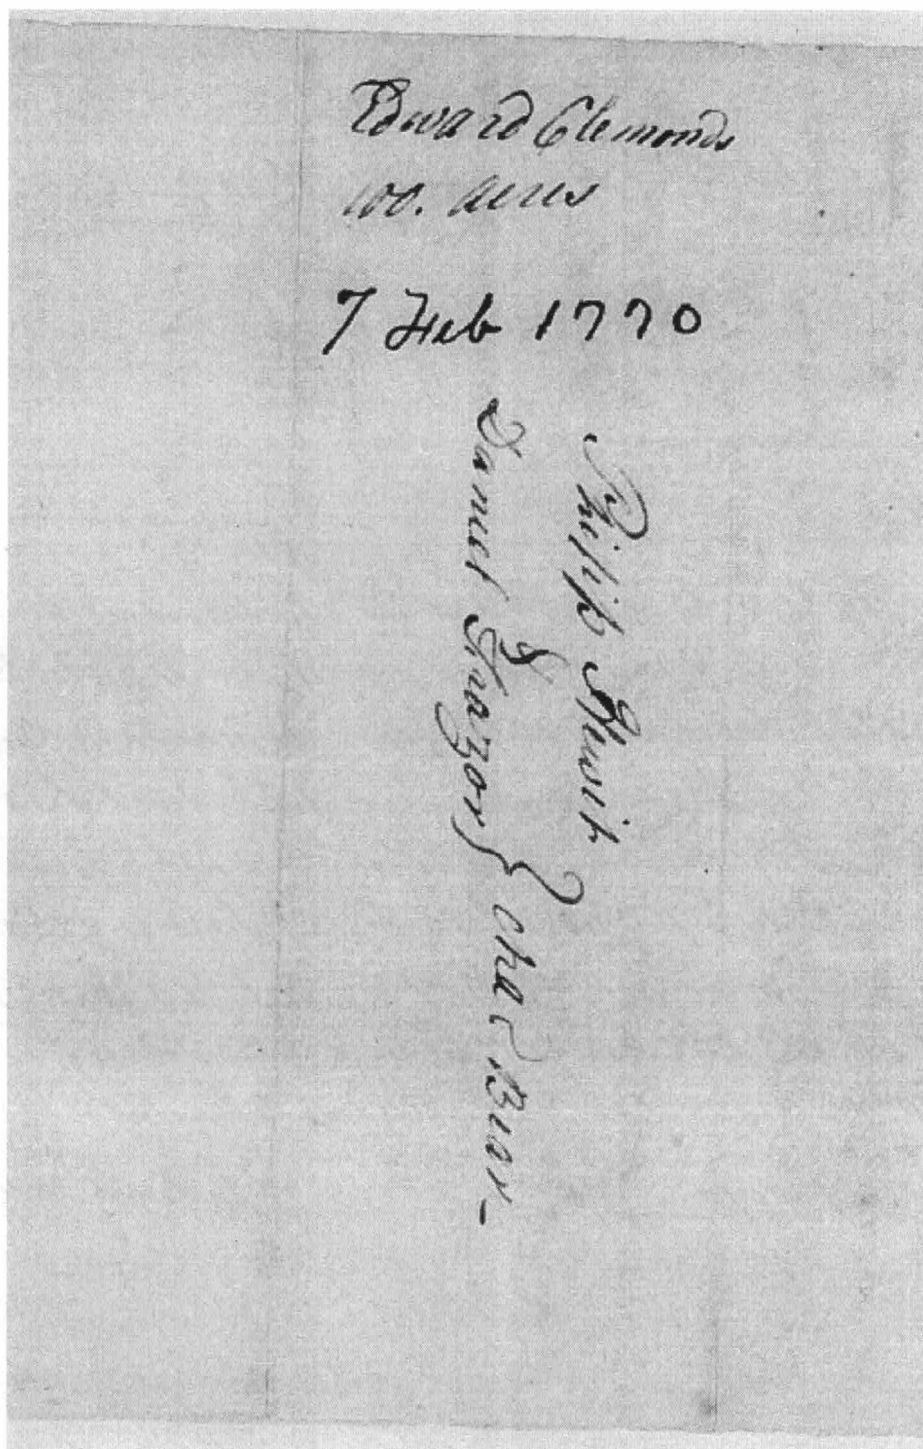 Edward Clemonds
100. acres
7 Feb 1770
Philip
&
Daniel Frazor } cha Bear-